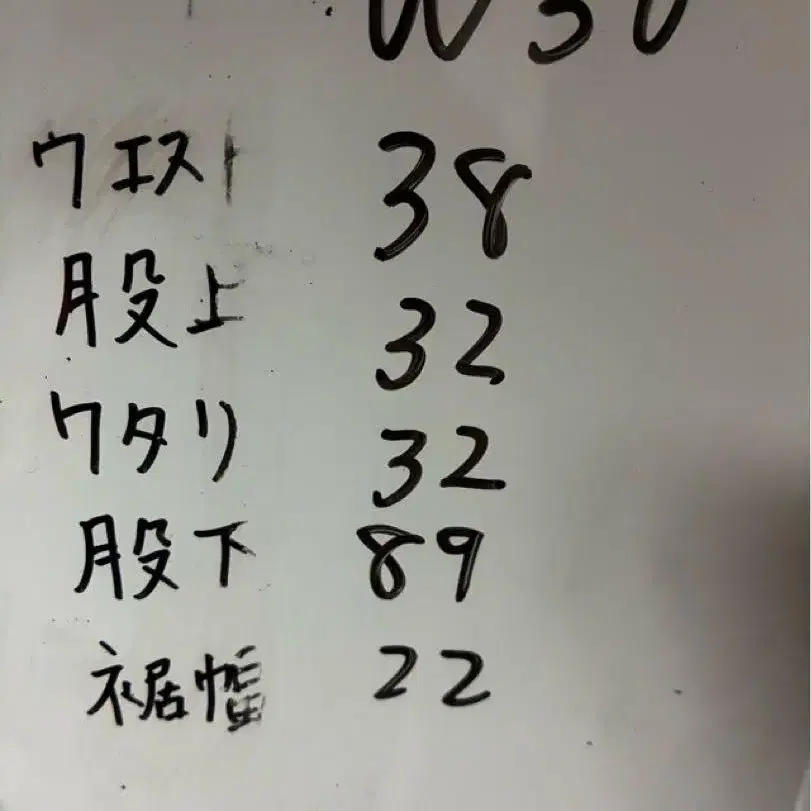 W30
ウエスト 38
股上 32
ワタリ 32
股下 89
裾幅 22